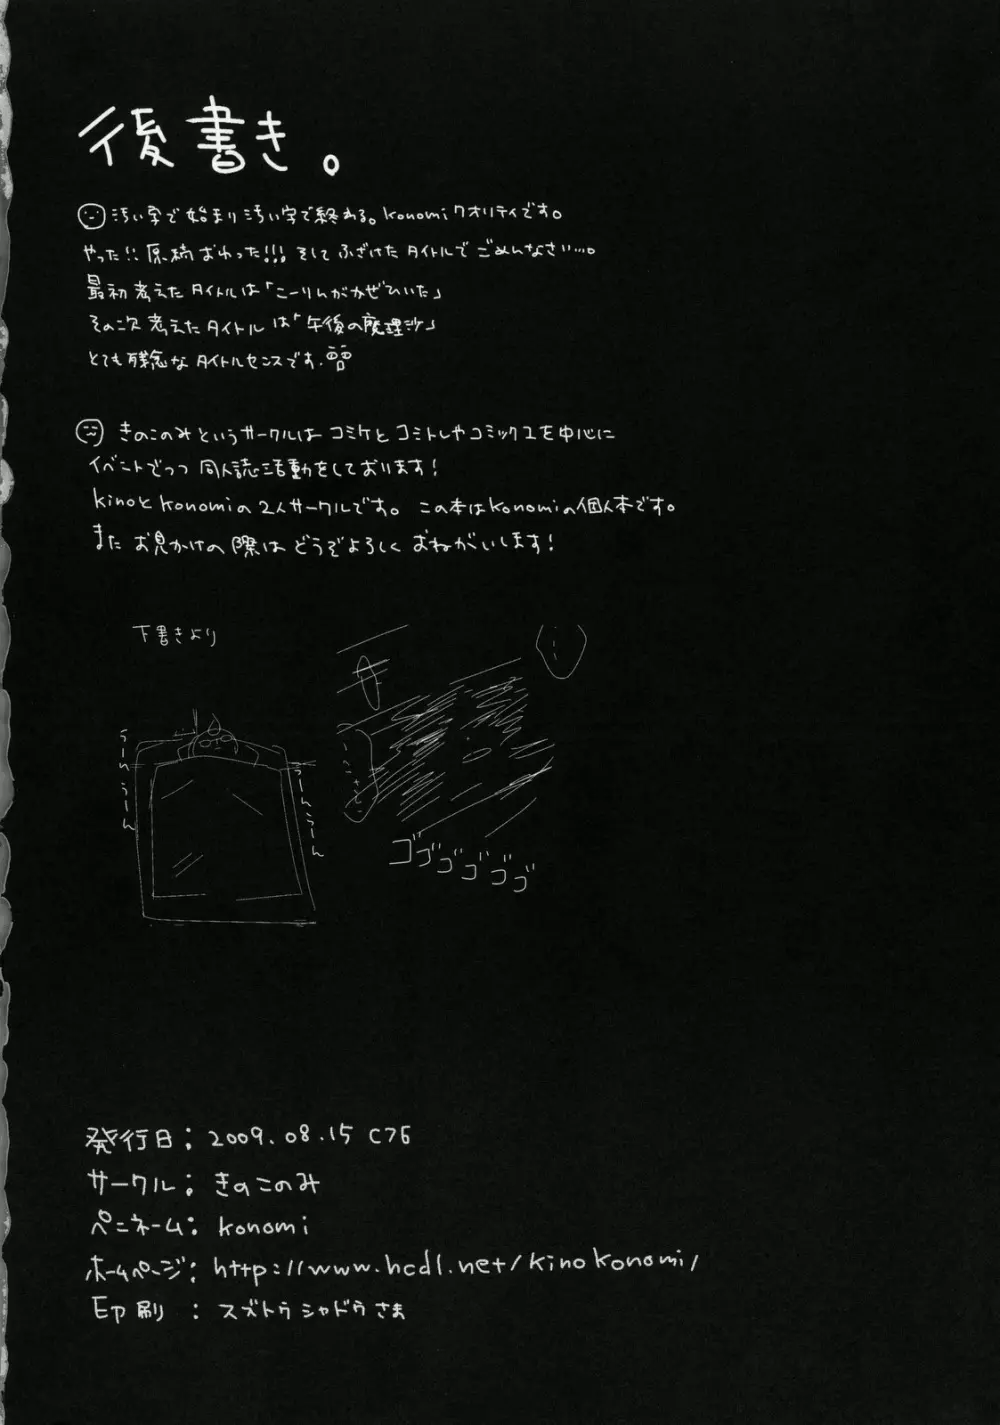 後書き。
汚い字で始まり汚い字で終わる。konomiクオリティです。
やった!!原稿おわった!!!そしてふざけたタイトルでごめんなさい…。
最初考えたタイトルは「こーりんがかぜひいた」
その次考えたタイトルは「午後の魔理沙」
とても残念なタイトルセンスです.
きのこのみというサークルはコミケとコミトレやコミック1を中心に
イベントでつつ同人誌活動をしております!
kinoとkonomiの2人サークルです。この本はkonomiの個人本です。
また お見かけの際は どうぞよろしく おねがいします!
下書きより
うーんうーん
うーんうーん
ゴゴゴゴゴゴ
発行日: 2009.08.15 C76
サークル: きのこのみ
ペンネーム: konomi
ホームページ: http://www.hcdl.net/kinokonomi/
印刷 : スズトウシャドウさま